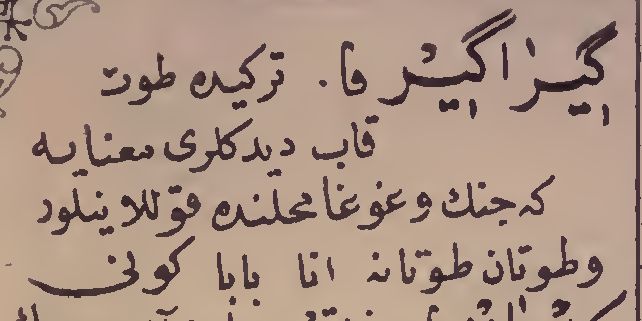 گیرا گیر فا. ترکیده طوت
قاپ دیدکلری معنایه
که جنك و غوغا محلنده قوللانیلور
و طوتان طوتانه انا بابا کونی